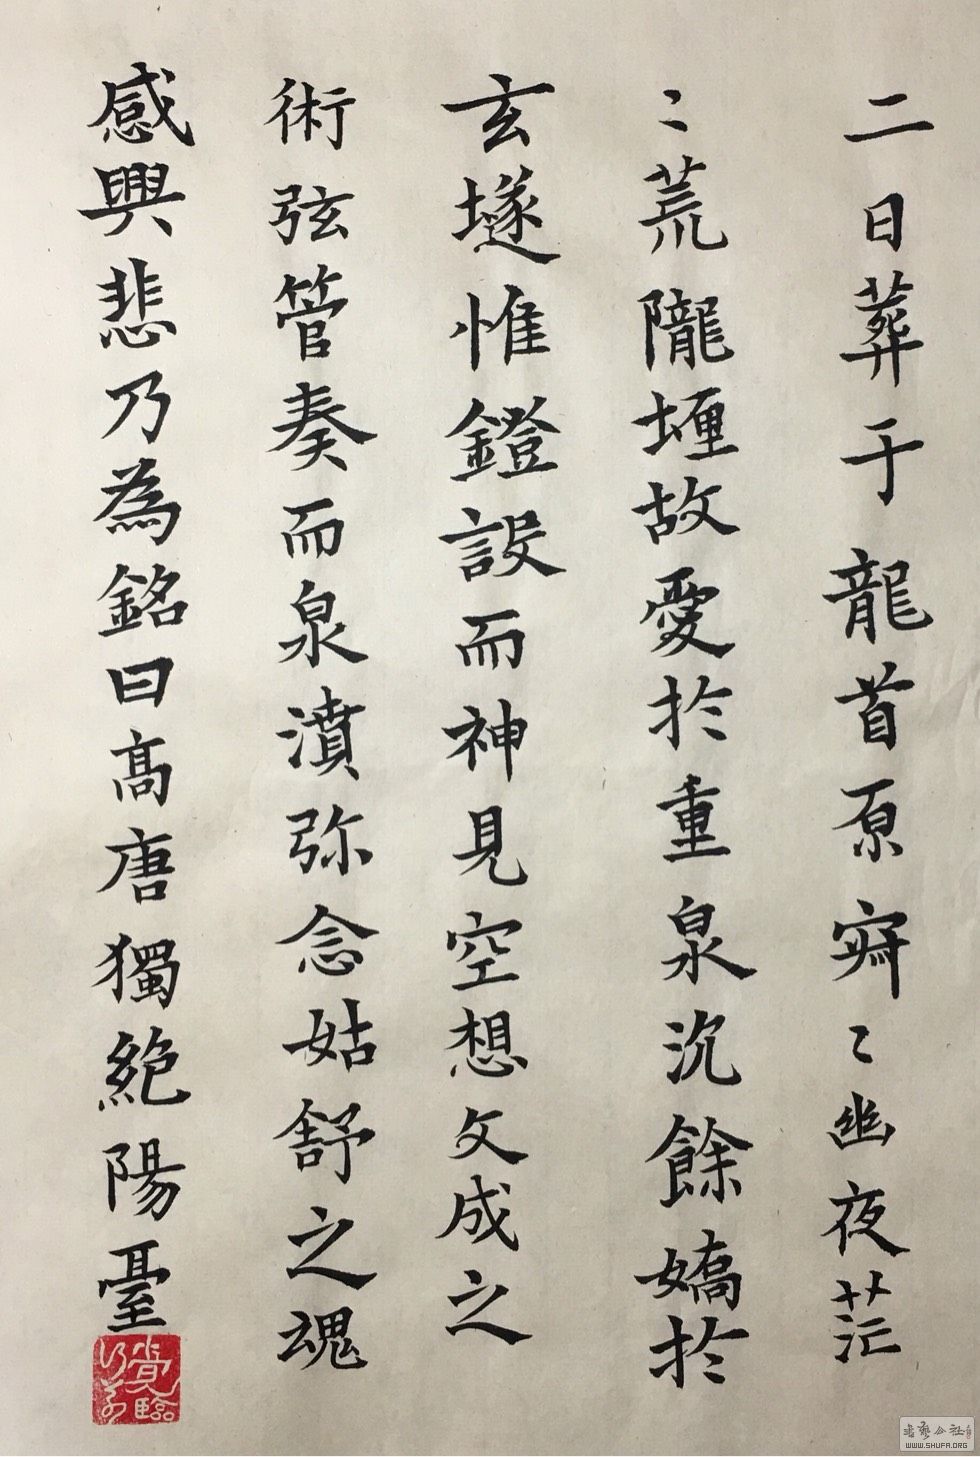 二日葬于龍首原寂〻幽夜茫
〻荒隴堙故愛於重泉沉餘嬌於
玄墜惟鐙設而神見空想文成之
術弦管奏而泉濆弥念姑舒之魂
感興悲乃為銘曰高唐獨絶陽臺
書藝公社
WWW.SHUFA.ORG